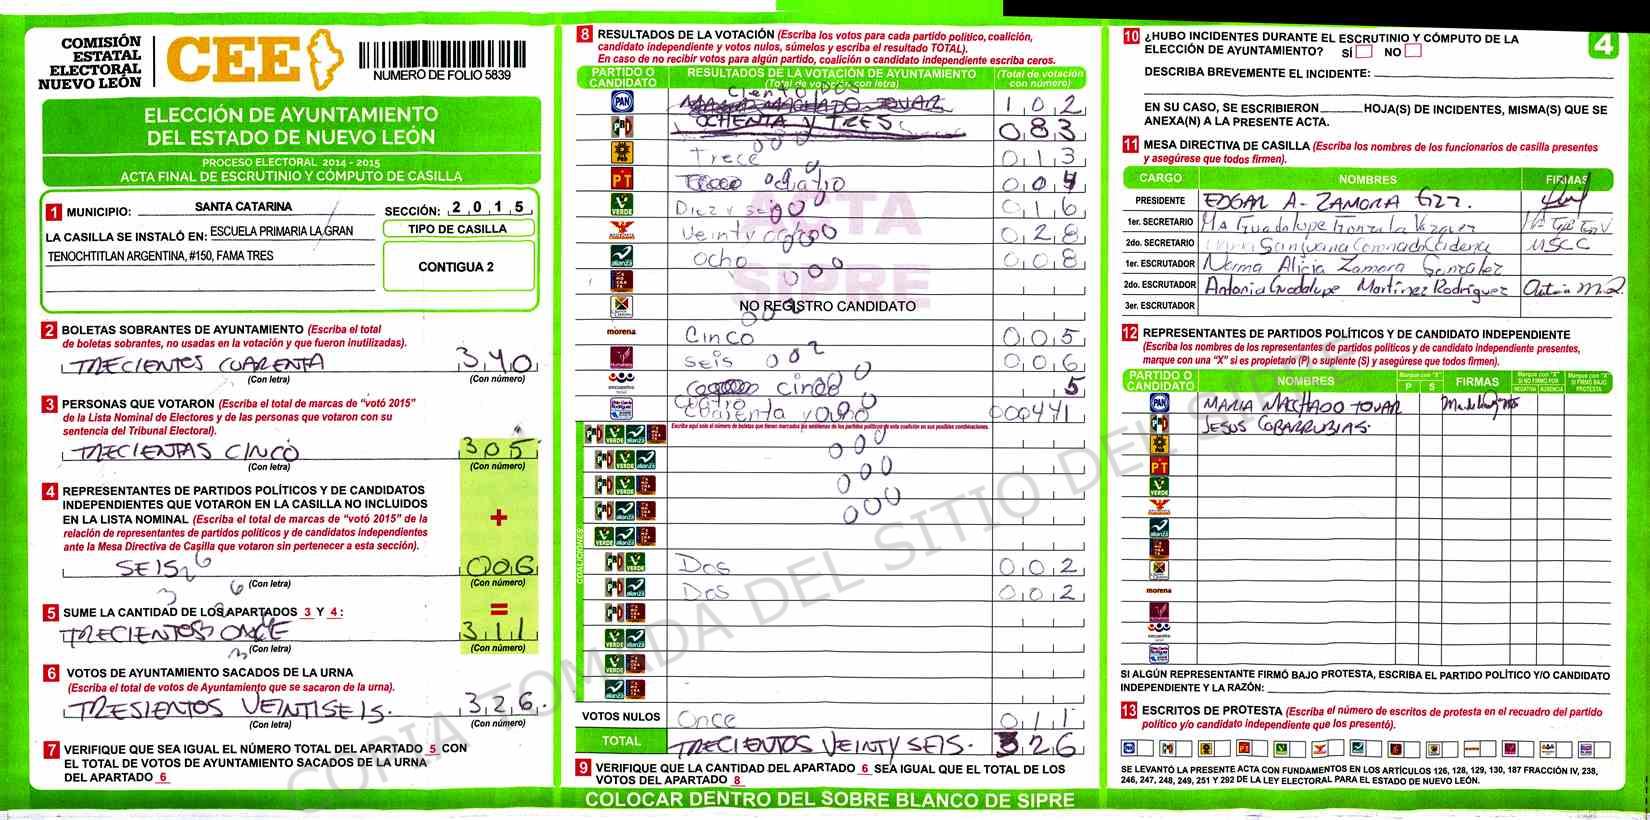 COMISIÓN
ESTATAL
ELECTORAL
NUEVO LEÓN
CEE
NUMERO DE FOLIO 5839
ELECCIÓN DE AYUNTAMIENTO
DEL ESTADO DE NUEVO LEÓN
PROCESO ELECTORAL 2014 - 2015
ACTA FINAL DE ESCRUTINIO Y CÓMPUTO DE CASILLA
1 MUNICIPIO: SANTA CATARINA
SECCIÓN: 2 0 1 5
LA CASILLA SE INSTALÓ EN: ESCUELA PRIMARIA LA GRAN
TENOCHTITLAN ARGENTINA, #150, FAMA TRES
TIPO DE CASILLA
CONTIGUA 2
2 BOLETAS SOBRANTES DE AYUNTAMIENTO (Escriba el total
de boletas sobrantes, no usadas en la votación y que fueron inutilizadas).
TRECIENTOS CUARENTA 340
(Con letra) (Con número)
3 PERSONAS QUE VOTARON (Escriba el total de marcas de "votó 2015"
de la Lista Nominal de Electores y de las personas que votaron con su
sentencia del Tribunal Electoral).
TRECIENTAS CINCO 305
(Con letra) (Con número)
4 REPRESENTANTES DE PARTIDOS POLÍTICOS Y DE CANDIDATOS
INDEPENDIENTES QUE VOTARON EN LA CASILLA NO INCLUIDOS
EN LA LISTA NOMINAL (Escriba el total de marcas de "votó 2015" de la
relación de representantes de partidos políticos y de candidatos independientes
ante la Mesa Directiva de Casilla que votaron sin pertenecer a esta sección).
+
SEIS 006
(Con letra) (Con número)
5 SUME LA CANTIDAD DE LOS APARTADOS 3 Y 4: =
TRECIENTOS ONCE 311
(Con letra) (Con número)
6 VOTOS DE AYUNTAMIENTO SACADOS DE LA URNA
(Escriba el total de votos de Ayuntamiento que se sacaron de la urna).
TRESIENTOS VEINTISEIS. 326
(Con letra) (Con número)
7 VERIFIQUE QUE SEA IGUAL EL NÚMERO TOTAL DEL APARTADO 5 CON
EL TOTAL DE VOTOS DE AYUNTAMIENTO SACADOS DE LA URNA
DEL APARTADO 6
8 RESULTADOS DE LA VOTACIÓN (Escriba los votos para cada partido político, coalición,
candidato independiente y votos nulos, súmelos y escriba el resultado TOTAL).
En caso de no recibir votos para algún partido, coalición o candidato independiente escriba ceros.
PARTIDO O CANDIDATO
RESULTADOS DE LA VOTACIÓN DE AYUNTAMIENTO
(Total de votación con letra)
(Total de votación con número)
PAN Ciento DOS 102
OCHENTA Y TRES 083
Trece 013
PT 004
VERDE Diez y seis 016
Veinty 028
alianza Ocho 008
NO REGISTRO CANDIDATO
morena Cinco 005
Seis 006
encuentro cinco 5
COALICIONES
Escriba aquí solo el número de boletas que tienen marcados los emblemas de los partidos políticos de esta coalición en sus posibles combinaciones.
000
000
000
Dos 002
Dos 002
VOTOS NULOS Once 011
TOTAL TRECIENTOS VEINTY SEIS. 326
9 VERIFIQUE QUE LA CANTIDAD DEL APARTADO 6 SEA IGUAL QUE EL TOTAL DE LOS
VOTOS DEL APARTADO 8
COLOCAR DENTRO DEL SOBRE BLANCO DE SIPRE
ACTA
SIPRE
COPIA TOMADA DEL SITIO DEL SIPRE
4
10 ¿HUBO INCIDENTES DURANTE EL ESCRUTINIO Y CÓMPUTO DE LA
ELECCIÓN DE AYUNTAMIENTO? SÍ NO
DESCRIBA BREVEMENTE EL INCIDENTE:
EN SU CASO, SE ESCRIBIERON HOJA(S) DE INCIDENTES, MISMA(S) QUE SE
ANEXA(N) A LA PRESENTE ACTA.
11 MESA DIRECTIVA DE CASILLA (Escriba los nombres de los funcionarios de casilla presentes
y asegúrese que todos firmen).
CARGO NOMBRES FIRMAS
PRESIDENTE EDGAR A. ZAMORA
1er. SECRETARIO Ma Guadalupe
2do. SECRETARIO Santana MSCC
1er. ESCRUTADOR Norma Alicia Zamora González
2do. ESCRUTADOR Antonia Guadalupe Martínez Rodríguez
3er. ESCRUTADOR
12 REPRESENTANTES DE PARTIDOS POLÍTICOS Y DE CANDIDATO INDEPENDIENTE
(Escriba los nombres de los representantes de partidos políticos y de candidato independiente presentes,
marque con una "X" si es propietario (P) o suplente (S) y asegúrese que todos firmen).
PARTIDO O CANDIDATO NOMBRES P S FIRMAS
PAN MARIA MACHADO TOVAR
JESUS COBARRUBIAS.
PT
VERDE
morena
encuentro
SI ALGÚN REPRESENTANTE FIRMÓ BAJO PROTESTA, ESCRIBA EL PARTIDO POLÍTICO Y/O CANDIDATO
INDEPENDIENTE Y LA RAZÓN:
13 ESCRITOS DE PROTESTA (Escriba el número de escritos de protesta en el recuadro del partido
político y/o candidato independiente que los presentó).
SE LEVANTÓ LA PRESENTE ACTA CON FUNDAMENTOS EN LOS ARTÍCULOS 126, 128, 129, 130, 187 FRACCIÓN IV, 238,
246, 247, 248, 249, 251 Y 292 DE LA LEY ELECTORAL PARA EL ESTADO DE NUEVO LEÓN.